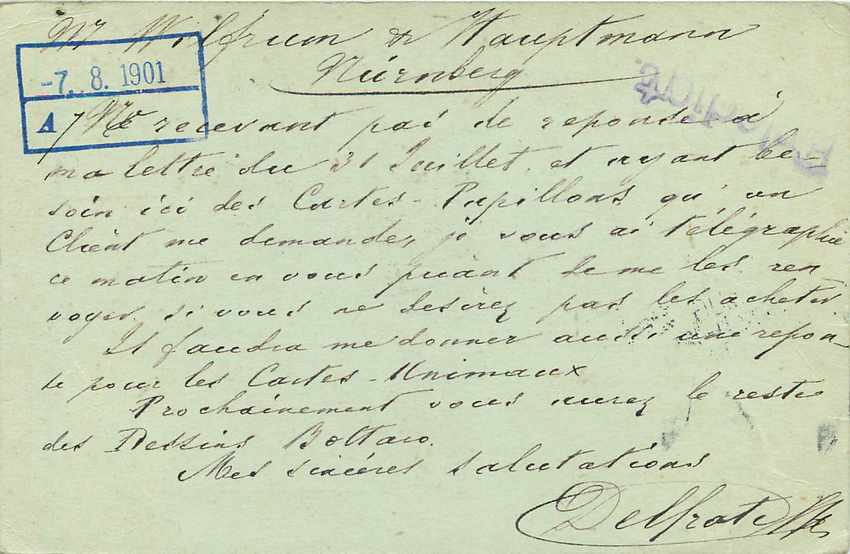 Mr Wilfrum & Hauptmann
Nürnberg
-7. 8. 1901
A
Ne recevant pas de reponse à
ma lettre du 31 Juillet, et ayant be-
soin ici des Cartes-Papillons qu'un
Client me demande, je vous ai télégraphié
ce matin en vous priant de me les ren
voyer, si vous ne desirez pas les acheter
Il faudra me donner aussi une repon-
se pour les Cartes-Animaux
Prochainement vous aurez le reste
des Dessins Bottaro.
Mes sincères salutations